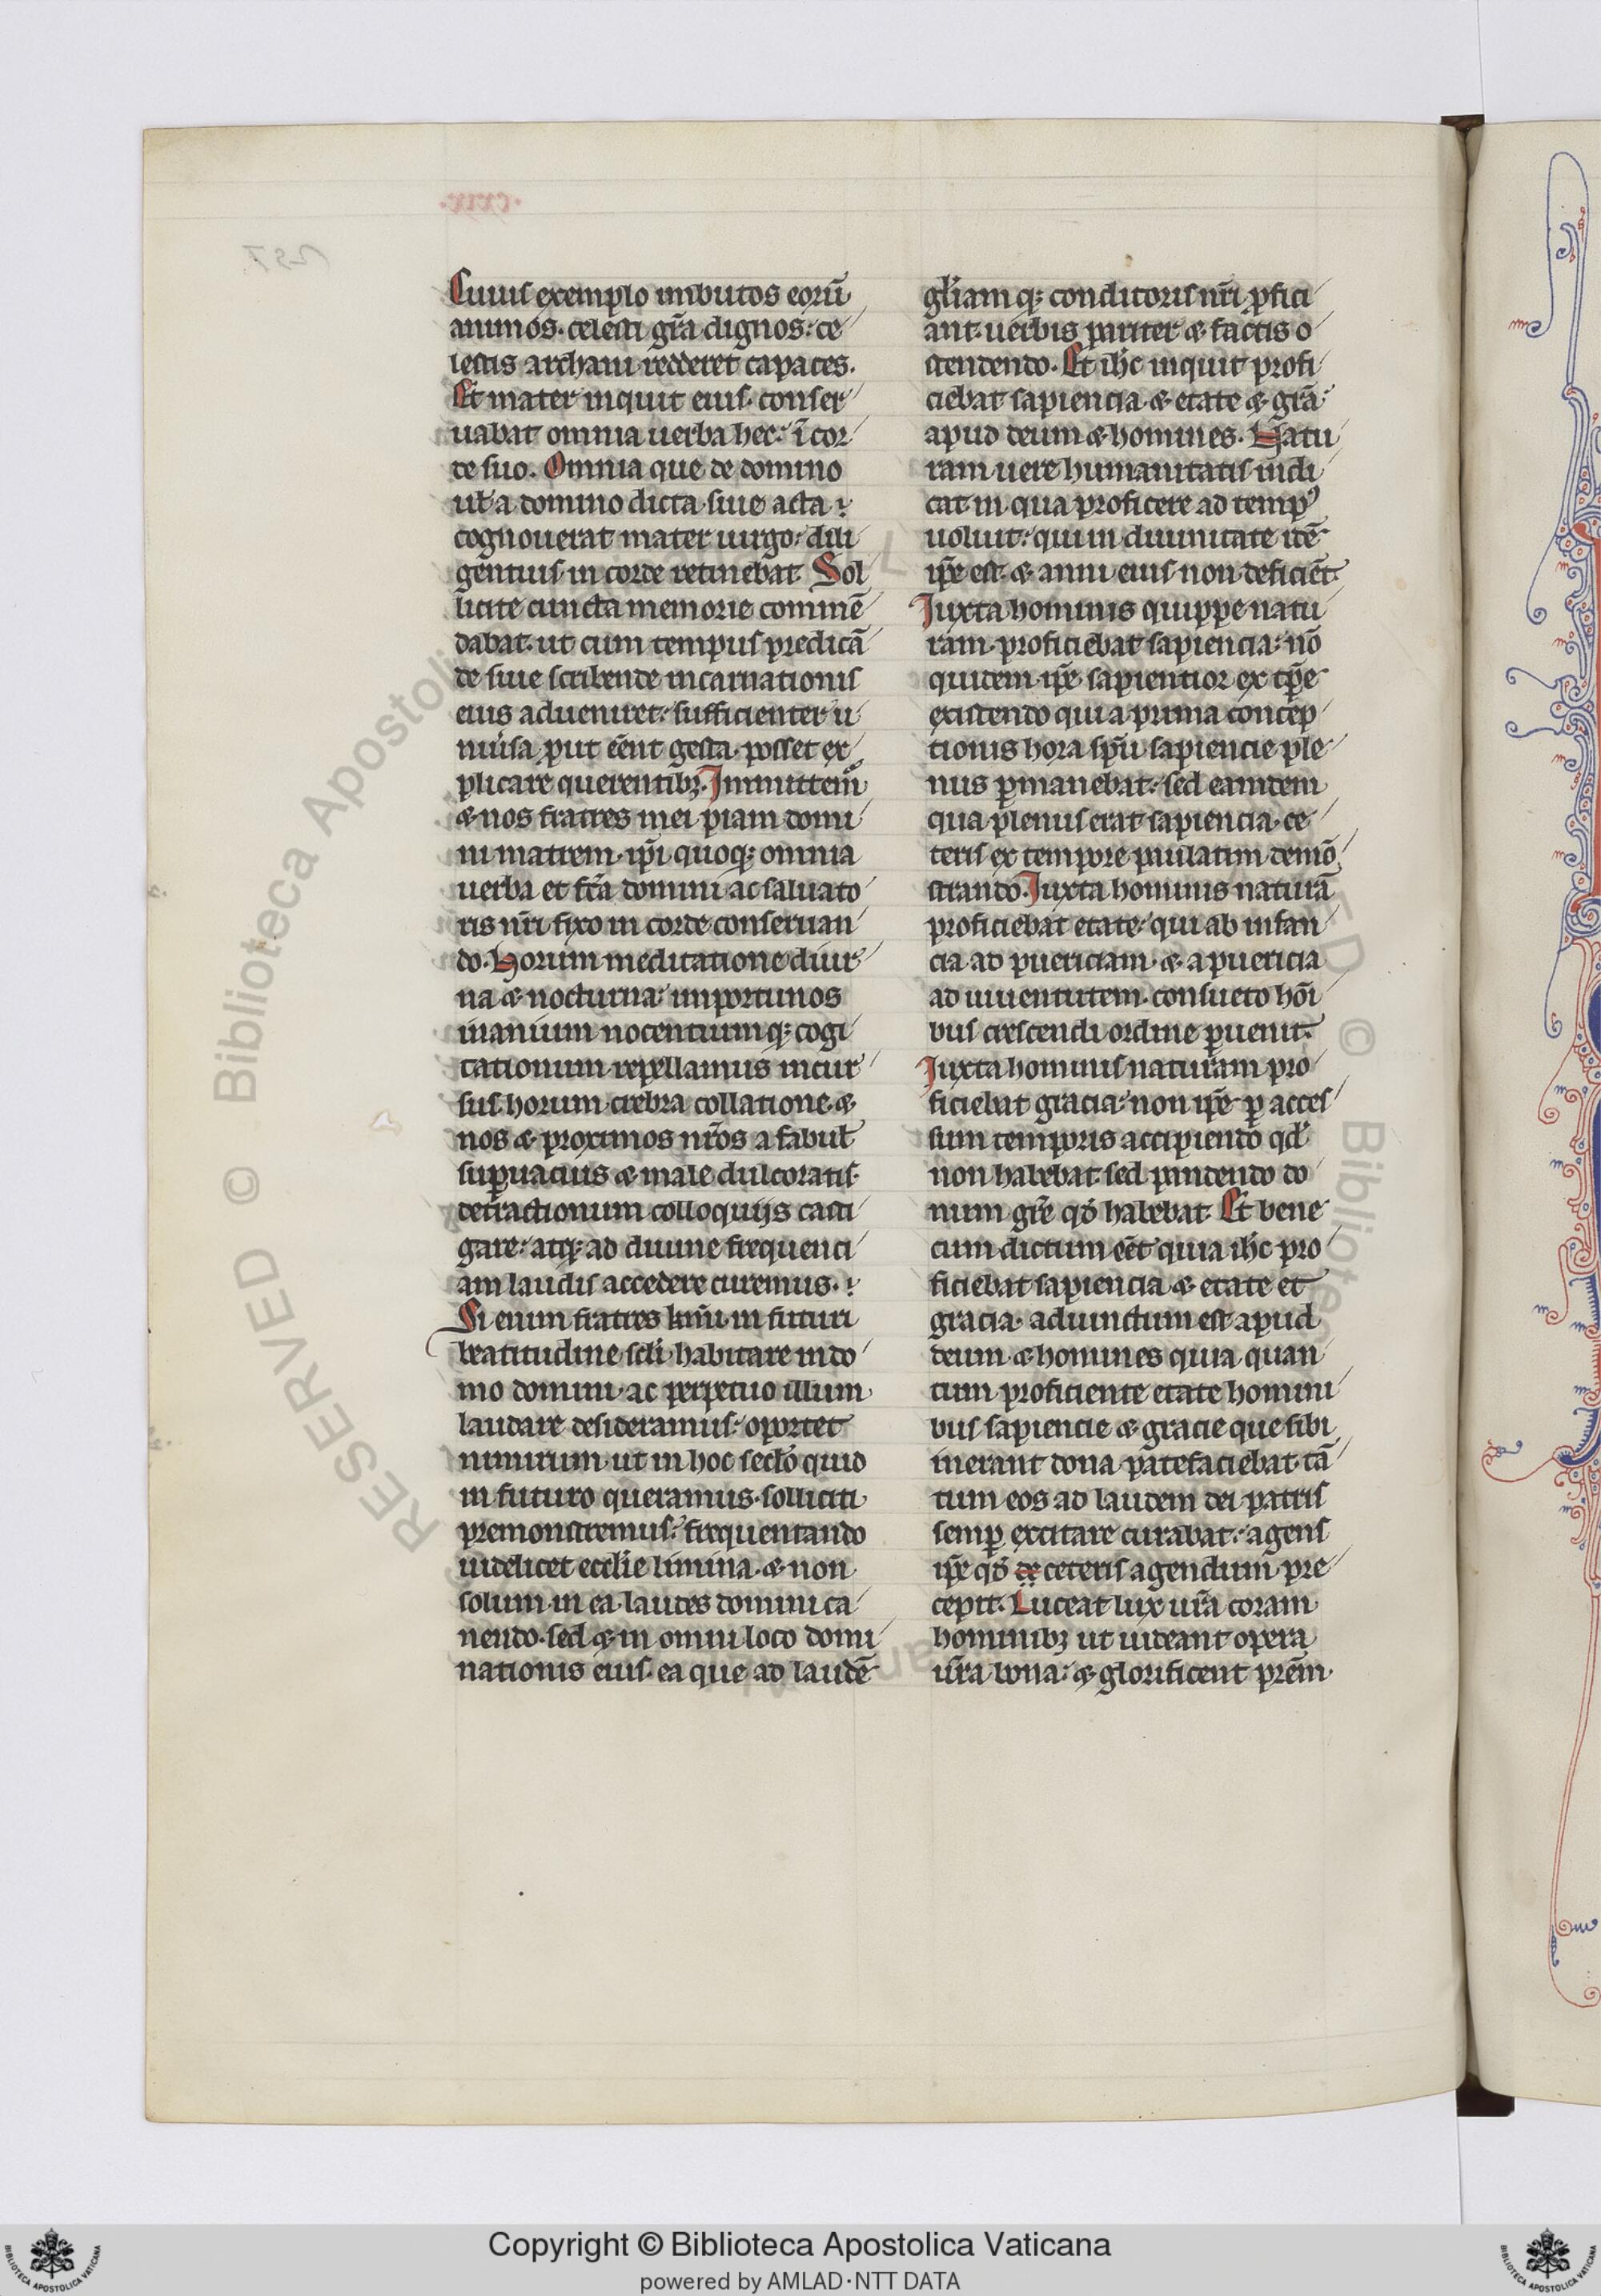 Cuius exemplo imbutos eorū
animos. celesti grā dignos. ce
lestis archani redderet capaces.
Et mater inquit eius conser
uabat omnia uerba hec. ī cor
de suo. Omnia que de domino
ul̄ a domino dicta siue acta
cognouerat mater uirgo. dili
gentius in corde retinebat. Sol
licite cuncta memorie commē
dabat. ut cum tempus predicā
de siue scribende incarnationis
eius adueniret. sufficienter u
niūsa prout eēnt gesta. posset ex
plicare querentibꝫ. Immittemur
⁊ nos fratres mei piam domi
ni matrem. ip̄i quoqꝫ omnia
uerba et fc̄a domini ac saluato
ris nr̄i fixo in corde conseruan
do. Horum meditatione diur
na ⁊ nocturna. importunos
inanium nocentiumqꝫ cogi
tationum repellamus incur
sus. horum crebra collatione ⁊
nos ⁊ proximos nr̄os a fabul̄
sup̄uacuis ⁊ male dulcoratis
detractionum colloquijs casti
gare. atqꝫ ad diuine frequenci
am laudis accedere curemus.
Si enim fratres km̄i in futuri
beatitudine scl̄i habitare in do
mo domini ac perpetuo illum
laudare desideramus. oportet
nimirum ut in hoc seclo quid
in futuro queramus solliciti
premonstremus. frequentando
uidelicet eccl̄ie limina. ⁊ non
solum in ea laudes domini ca
nendo. sed ⁊ in omni loco domi
nationis eius. ea que ad laudē
gl̄iam qꝫ conditoris nr̄i profici
ant. uerbis pariter ⁊ factis o
stendendo. Et ih̄c inquit profi
ciebat sapiencia ⁊ etate ⁊ grā
apud deum ⁊ homines. Natu
ram uere humanitatis indi
cat in qua proficere ad tempꝰ
uoluit. qui in diuinitate idē
ip̄e est. ⁊ anni eius non deficiēt.
Juxta hominis quippe natu
ram proficiebat sapiencia. nō
quidem ip̄e sapientior ex tp̄e
existendo qui a prima concep
tionis hora sp̄u sapiencie ple
nus p̄manebat. sed eamdem
qua plenus erat sapiencia. ce
teris ex tempore paulatim demō
strando. Juxta hominis naturā
proficiebat etate. qui ab infan
cia ad puericiam. ⁊ a puericia
ad iuuentutem. consueto hōi
bus crescendi ordine p̄uenit.
Juxta hominis naturam pro
ficiebat gracia. non ip̄e p̄ acces
sum temporis accipiendo qd̄
non habebat. sed pandendo do
num gr̄e qd̄ habebat. Et bene
cum dictum eēt quia ih̄c pro
ficiebat sapiencia ⁊ etate et
gracia. adiunctum est apud
deum ⁊ homines quia quan
tum proficiente etate homini
bus sapiencie ⁊ gracie que sibi
inerant dona patefaciebat. tā
tum eos ad laudem dei patris
semp̄ excitare curabat. agens
ip̄e qd̄ de ceteris agendum pre
cepit. Luceat lux ur̄a coram
hominibꝫ ut uideant opera
ur̄a bona. ⁊ glorificent prēm
RESERVED © Biblioteca Apostolica
© Biblioteca
Copyright © Biblioteca Apostolica Vaticana
powered by AMLAD·NTT DATA
BIBLIOTECA APOSTOLICA VATICANA
BIBLIOTECA APOSTOLICA VATICANA